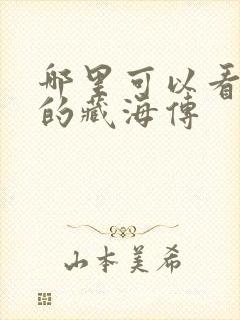 哪里可以看
的藏海传
山本美希